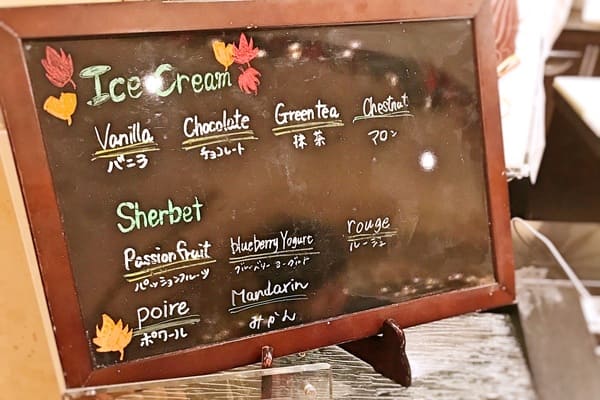 Ice Cream
Vanilla Chocolate Green tea Chestnut
バニラ チョコレート 抹茶 マロン
Sherbet
Passion fruit blueberry Yogurt rouge
パッションフルーツ ブルーベリーヨーグルト ルージュ
Poire Mandarin
ポワール みかん